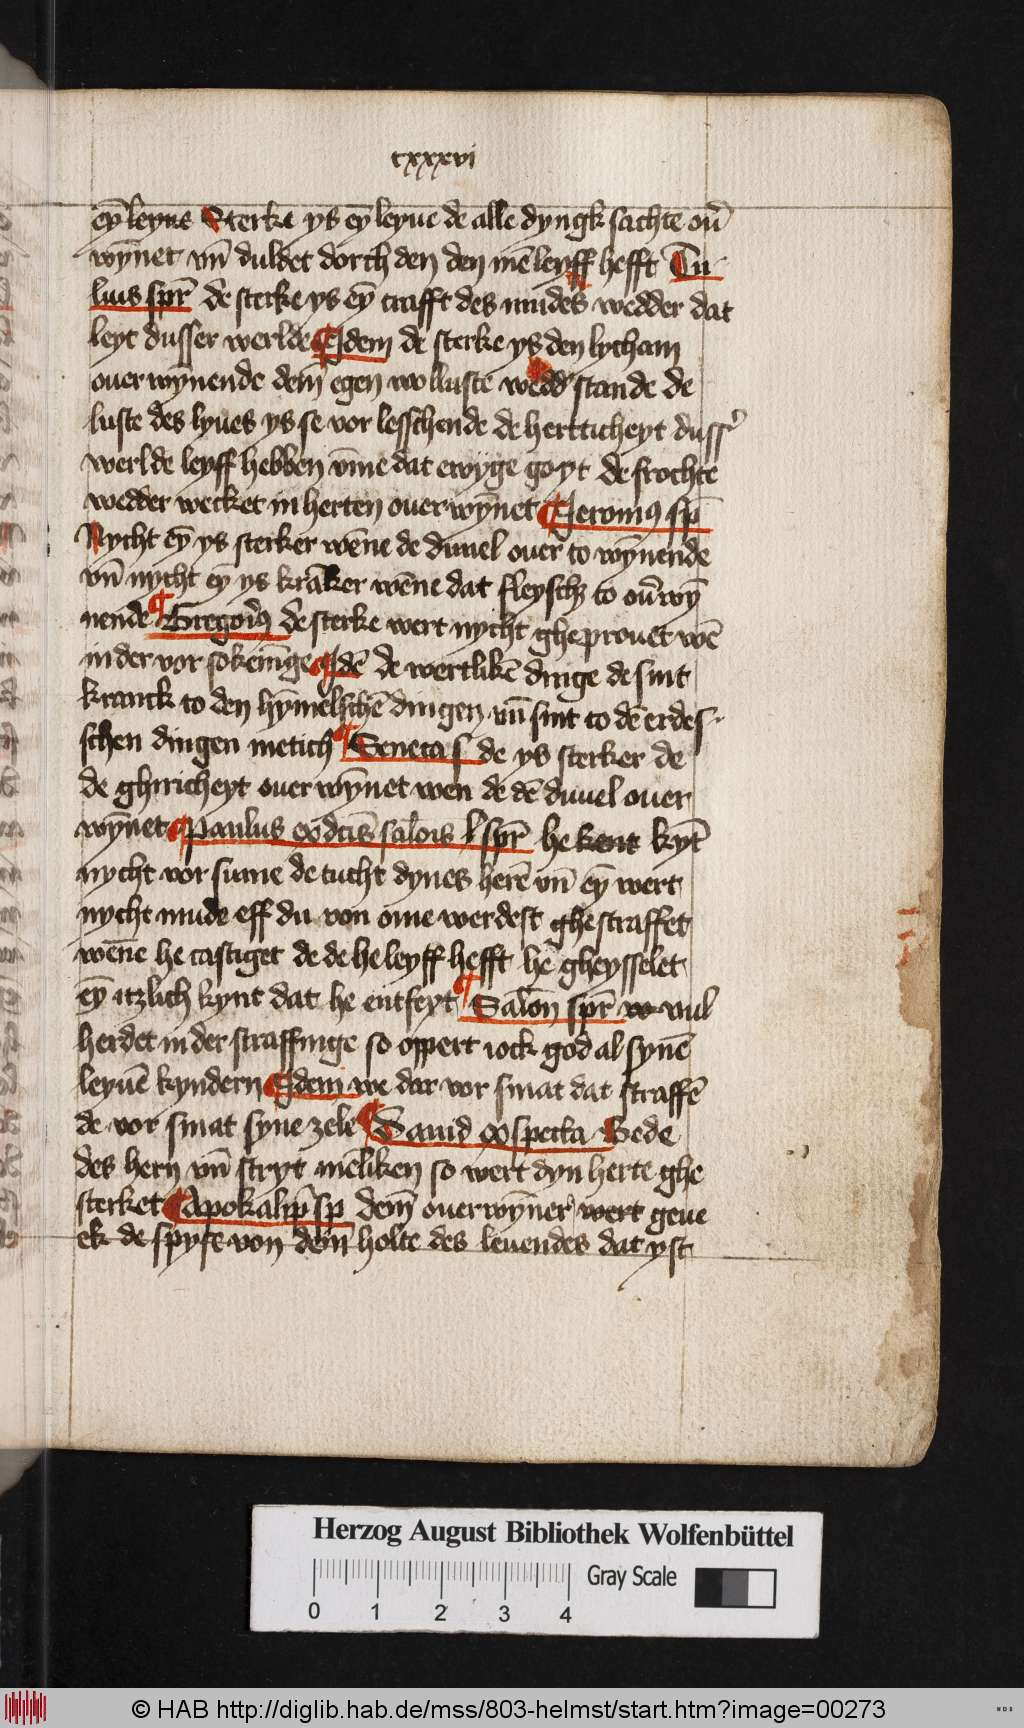 cxxxvi
eȳ leyue Sterke ys eȳ leyue de alle dyngk sachte ou̅
wȳnet vn̄ duldet dorch den den mē leyff hefft Tu
lius spr̄ de sterke ys eȳ crafft des mudes wedder dat
leyt dusser werlde ¶ Idem de sterke ys den lycham
ouer wȳnende dem̄ egen wolluste wedd' stande de
luste des lyues ys se vor lesschende de hertticheyt duss'
werlde leyff hebben vm̄e dat ewyge goyt de frochte
wedder wecket in herten ouerwȳnet ¶ Jeronimꝰ sp̄
Nycht eȳ ys sterker wēne de duuel ouer to wȳnende
vn̄ nycht eȳ ys krāker wēne dat fleysch to ou̅wȳ
nende ¶ Gregoriꝰ de sterke wert nycht gheprouet wē
in der vor sokenīge ¶ Idē de wertlikē dinge de sint
kranck to den hȳmelschē dingen vn̄ sint to dē erdes
schen dingen metich ¶ Seneca s de ys sterker de
de ghiricheyt ouer wȳnet wen de dē duuel ouer
wȳnet ¶ Paulus salois spr̄ he kent kyt
nycht vor sume de tucht dynes herē vn̄ eȳ wert
nycht mude eff du von ome werdest ghestraffet
wēne he castiget de de he leyff hefft he gheysselet
eȳ itzlich kynt dat he entfeyt ¶ Salon̄ spr̄ w vul
herdet in der straffinge so oppert iock god al synē
leyuē kyndern ¶ Idem we dar vor smat dat straffē
de vor smat syne zele ¶ Dauid exspecta Bede
des hern vn̄ stryt mēliken so wert dyn herte ghe
sterket ¶ Apokalip̄ sp dem̄ ouerwȳner wert geue
ek de spyse von dem̄ holte des leuendes dat yst
Herzog August Bibliothek Wolfenbüttel
Gray Scale
0 1 2 3 4
© HAB http://diglib.hab.de/mss/803-helmst/start.htm?image=00273